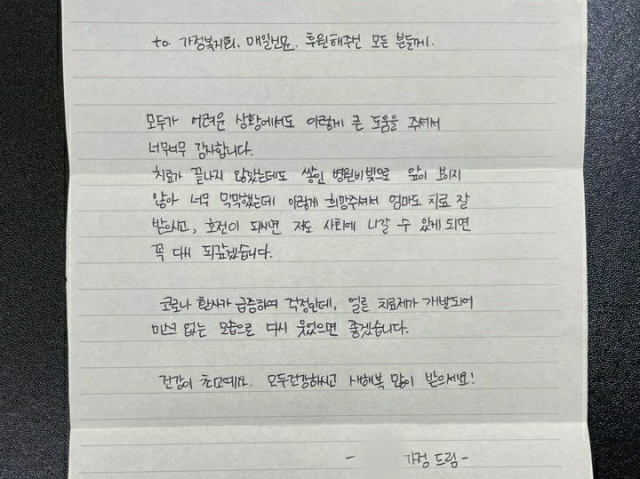 to. 가정복지회. 매일신문. 후원해주신 모든 분들께.
모두가 어려운 상황에서도 이렇게 큰 도움을 주셔서
너무너무 감사합니다.
치료가 끝나지 않았는데도 쌓인 병원비빚으로 앞이 보이지
않아 너무 막막했는데 이렇게 희망주셔서 엄마도 치료 잘
받으시고, 호전이 되시면 저도 사회에 나갈 수 있게 되면
꼭 다시 되갚겠습니다.
코로나 환자가 급증하여 걱정인데, 얼른 치료제가 개발되어
마스크 없는 모습으로 다시 웃었으면 좋겠습니다.
건강이 최고예요. 모두건강하시고 새해복 많이 받으세요!
- 가정 드림 -